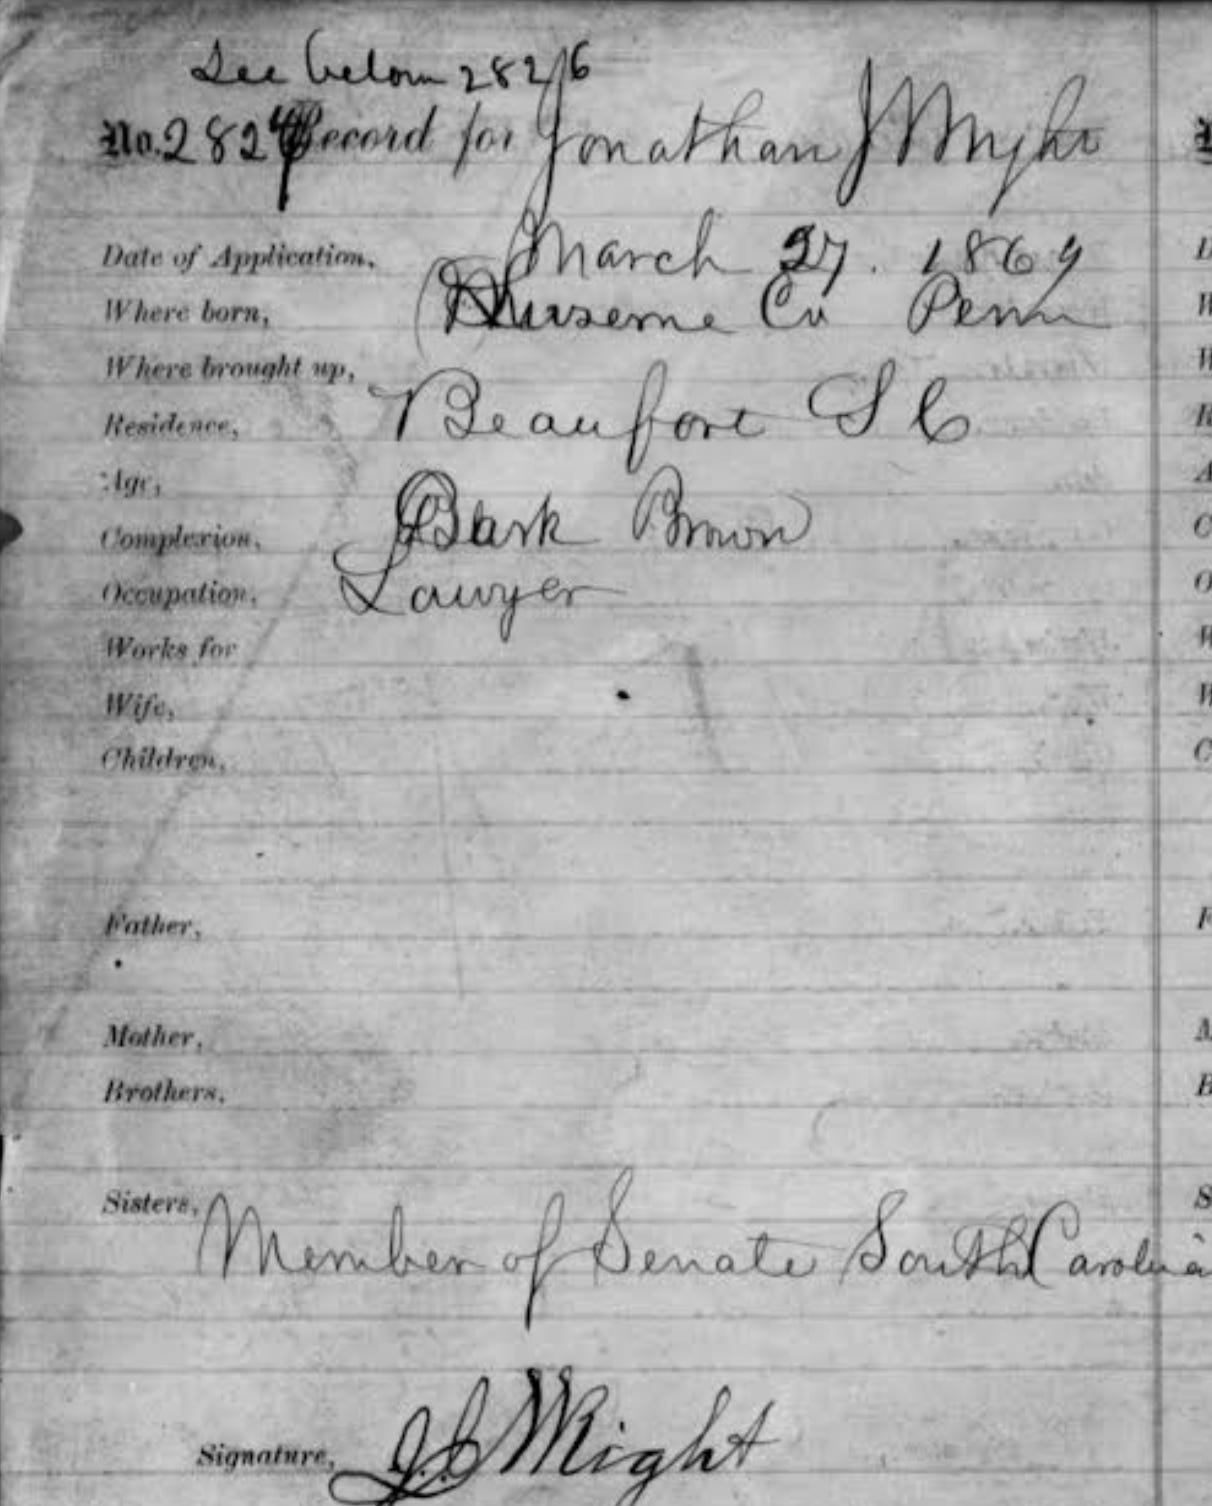 See below 2826
No. 2824 Record for Jonathan J Wright
Date of Application, March 27. 1869
Where born, Luzerne Co Penn
Where brought up,
Residence, Beaufort S C
Age,
Complexion, Dark Brown
Occupation, Lawyer
Works for
Wife,
Children,
Father,
Mother,
Brothers,
Sisters,
Member of Senate South Carolina
Signature, J. J. Wright